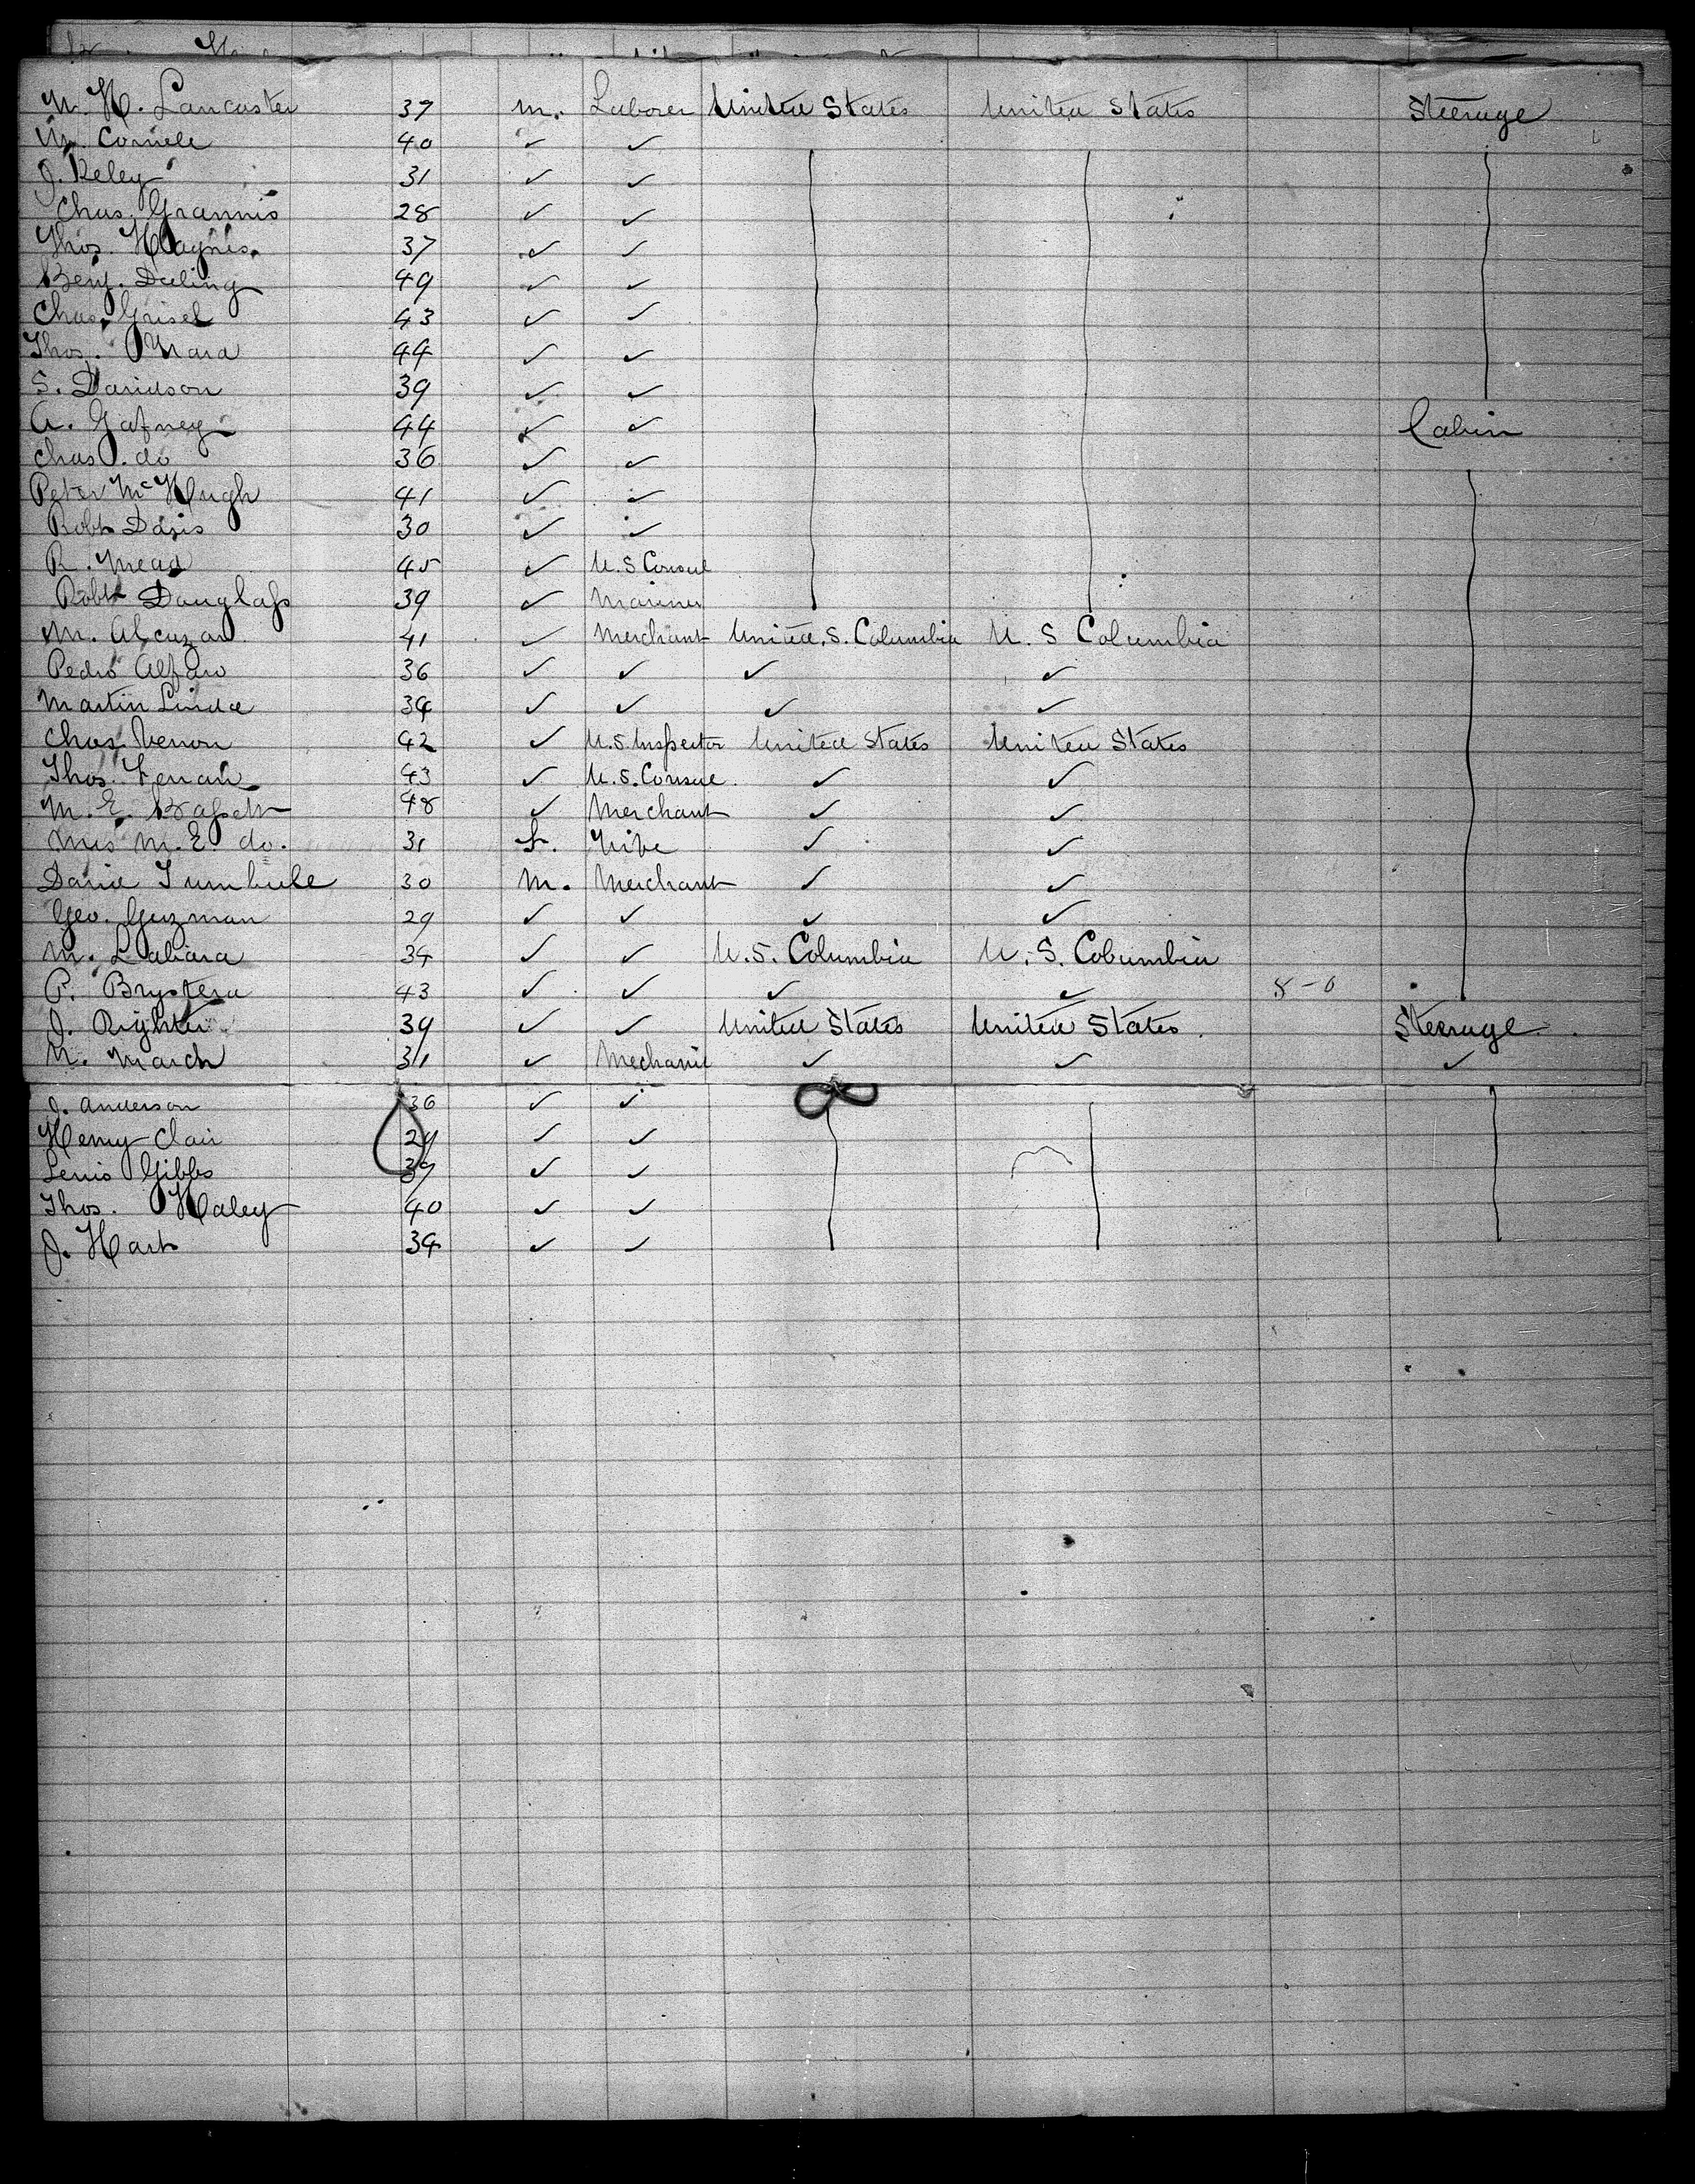 H. Lancaster 37 m. Laborer United States United States Steerage
Cornele 40 ✓ ✓
J. Reley 31 ✓ ✓
Chas. Grannis 28 ✓ ✓
Thos. Haynes. 37 ✓ ✓
Benj. Daling 49 ✓ ✓
Chas. Grisel 43 ✓ ✓
Thos. Omara 44 ✓ ✓
S. Davidson 39 ✓ ✓
A. Gafney 44 ✓ ✓ Cabin
Chas. do 36 ✓ ✓
Peter McHugh 41 ✓ ✓
Robt Davis 30 ✓ ✓
R. Mead 45 ✓ U.S Consul
Robt Douglass 39 ✓ Mariner
M. Alcazar 41 ✓ Merchant United. S. Columbia U. S Columbia
Pedro Alfaro 36 ✓ ✓ ✓ ✓
Martin Linda 34 ✓ ✓ ✓ ✓
Chas. Venon 42 ✓ U.S. Inspector United States United States
Thos. 43 ✓ U.S. Consul ✓ ✓
M. E. Bassett 48 ✓ Merchant ✓ ✓
Mrs M. E. do. 31 f. Wife ✓ ✓
David Turnbull 30 m. Merchant ✓ ✓
Geo. Guzman 29 ✓ ✓ ✓ ✓
M. Labiara 34 ✓ ✓ U.S. Columbia U. S. Columbia
P. Brystera 43 ✓ ✓ ✓ ✓ 8-0
J. Righter 39 ✓ ✓ United States United States. Steerage
March 31 ✓ Mechanic ✓ ✓ ✓
J. Anderson 36 ✓ ✓
Henry Clair 29 ✓ ✓
Lewis Gibbs 37 ✓ ✓
Thos. Haley 40 ✓ ✓
J. Hart 34 ✓ ✓